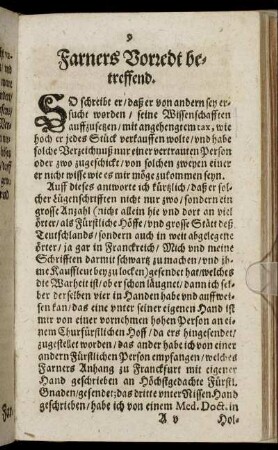 9
Farners Vorredt be-
treffend.
SO schreibt er/ daß er von andern sey er-
sucht worden / seine Wissenschafften
auffzusetzen/ mit angehengtem tax, wie
hoch er jedes Stück verkauffen wolte/ vnd habe
solche Verzeichnüß nur einer vertrauten Person
oder zwo zugeschickt/ von solchen zweyen einer
er nicht wisse wie es mir möge zukommen seyn.
Auff dieses antworte ich kürtzlich/ daß er sol-
cher Lügenschrifften nicht nur zwo/ sondern ein
grosse Anzahl (nicht allein hie vnd dort an viel
örter/ als Fürstliche Höffe/ vnd grosse Stät deß
Teutschlands/ sondern auch in weit abgelegene
örter/ ja gar in Franckreich/ Mich vnd meine
Schrifften darmit schwartz zu machen/ vnd ih-
me Kauffleut bey zu locken) gesendet hat/ welches
die Warheit ist/ ob er schon läugnet/ dann ich sel-
ber derselben vier in Handen habe vnd auffwei-
sen kan/ das eine vnter seiner eigenen Hand ist
mir von einer vornehmen hohen Person an ei-
nem Churfürstlichen Hoff/ da ers hingesendet/
zugestellet worden/ das ander habe ich von einer
andern Fürstlichen Person empfangen/ welches
Farners Anhang zu Franckfurt mit eigener
Hand geschrieben an Höchstgedachte Fürstl.
Gnaden/ gesendet; das dritte vnter Nissen Hand
geschrieben/ habe ich von einem Med. Doct. in
A v Hol-